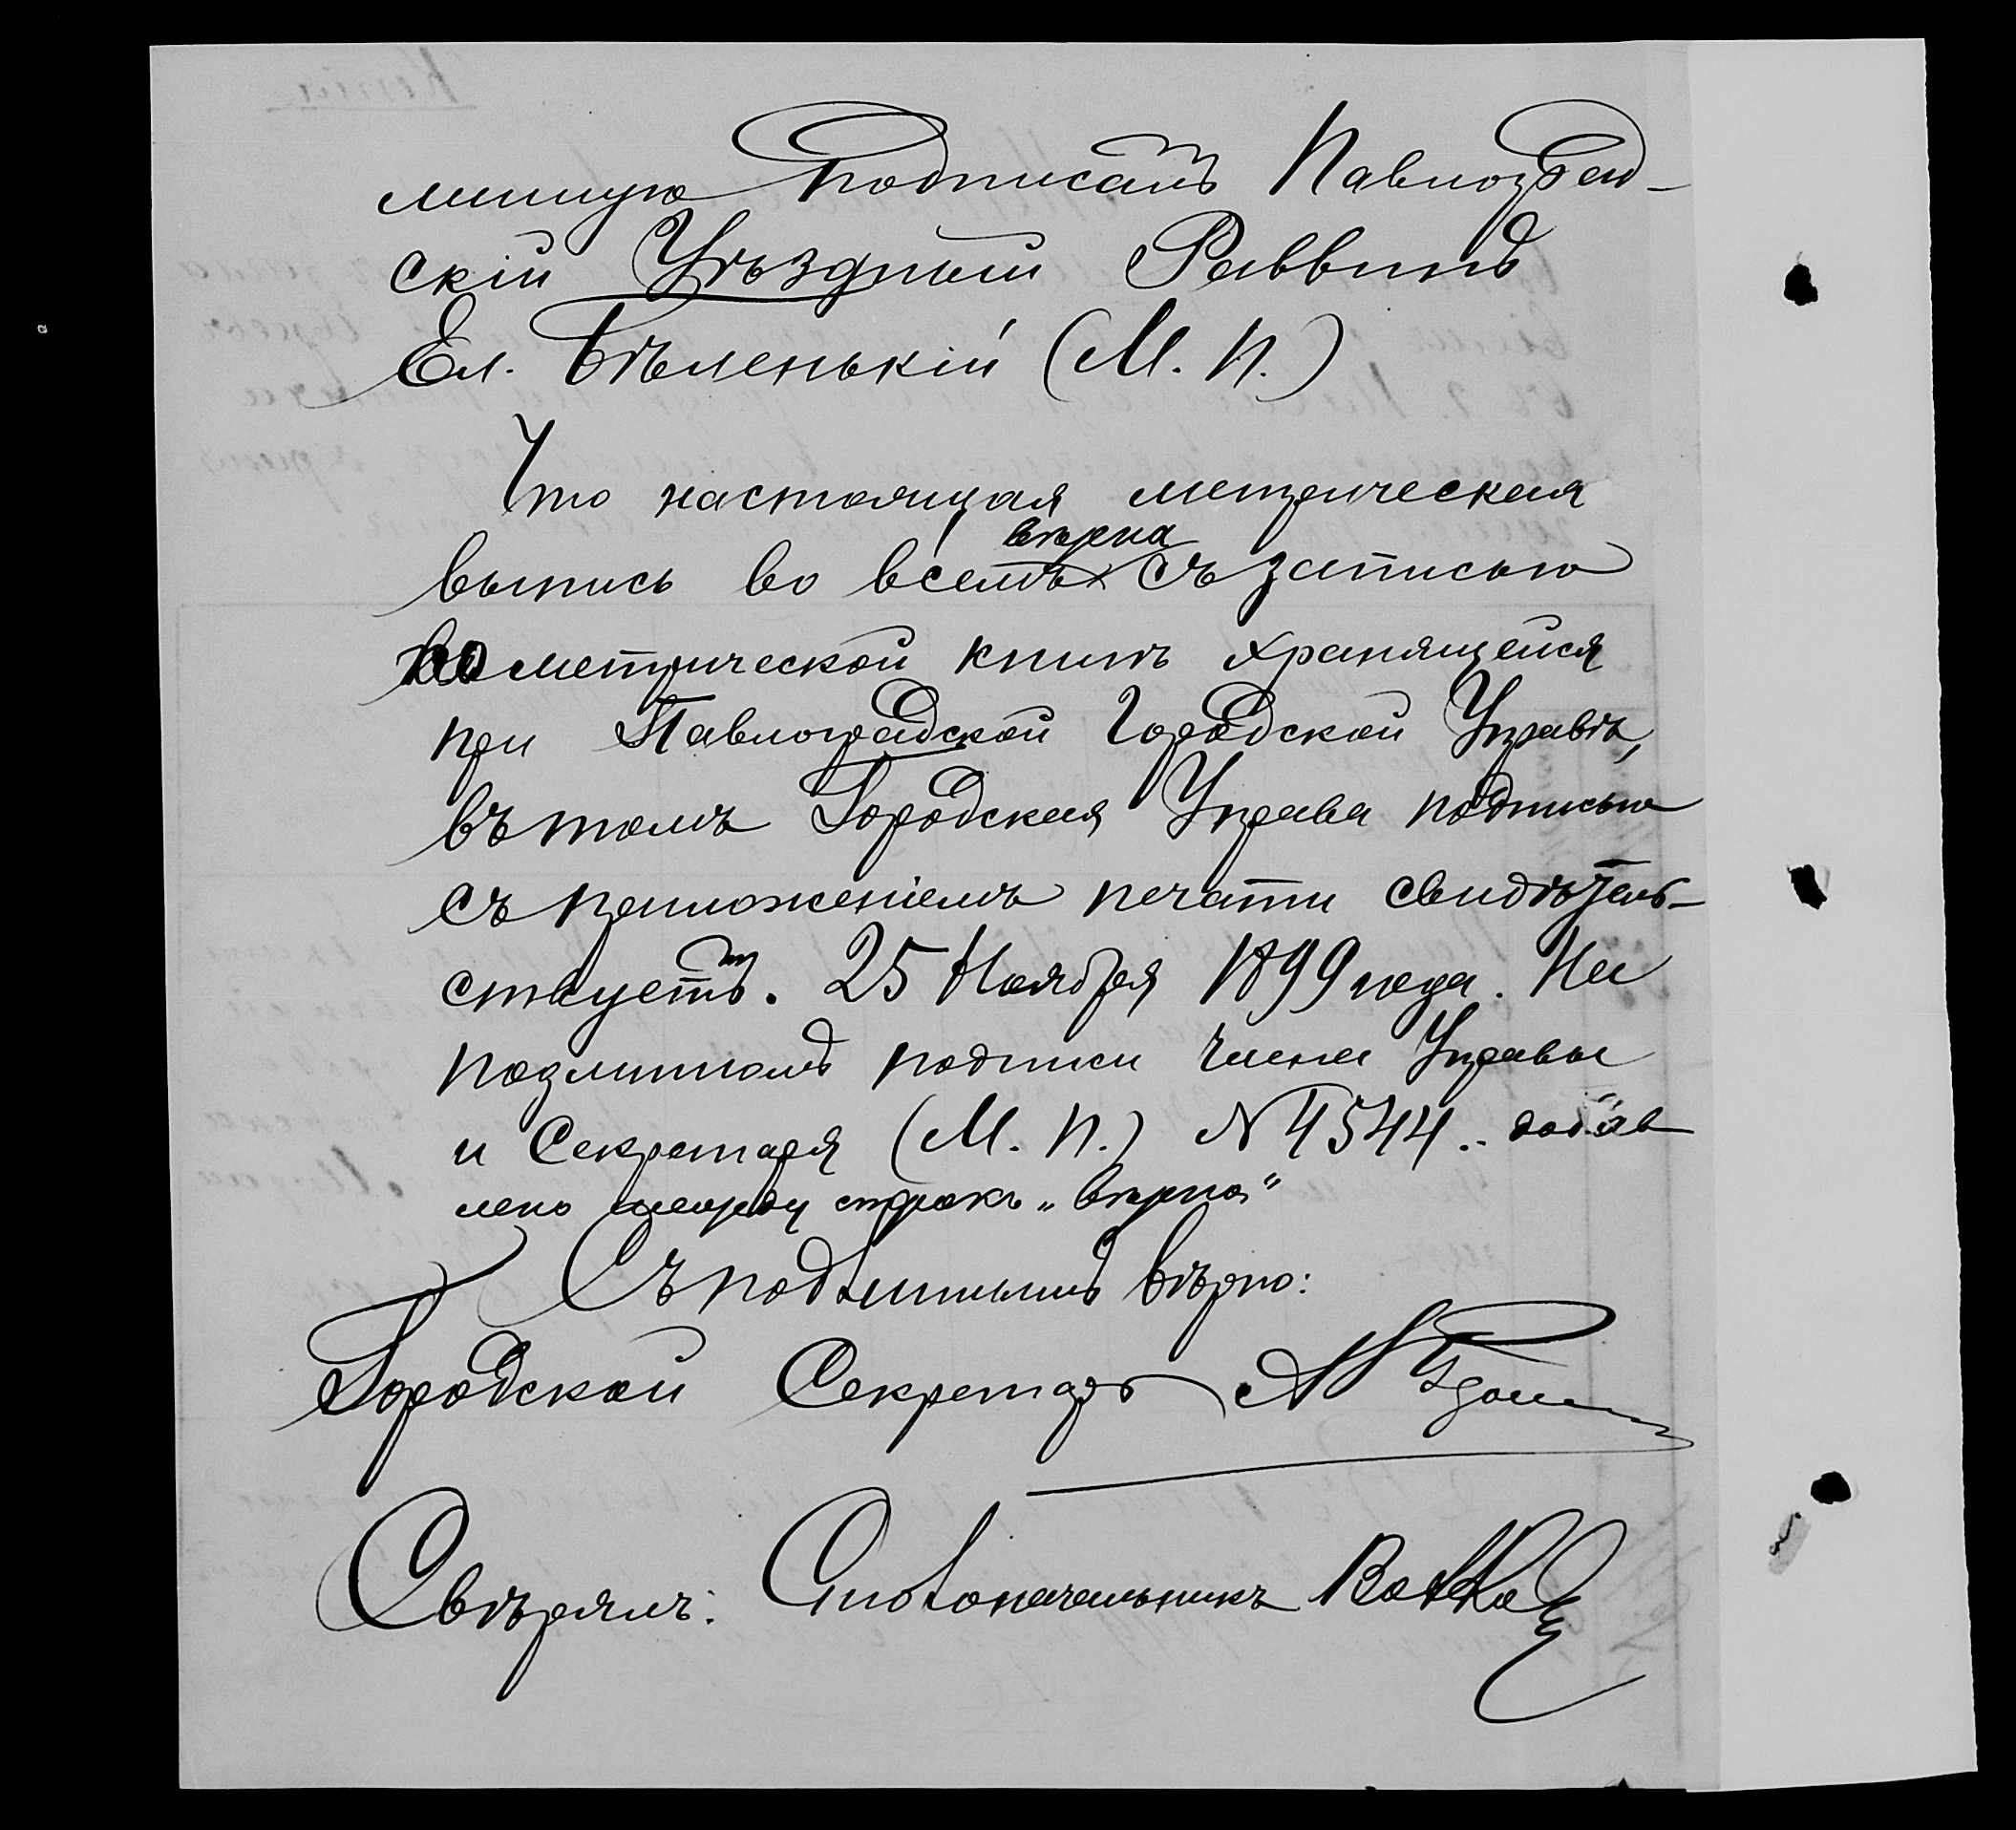 линную подписалъ Павлоград-
скій Уѣздный Раввинъ
Ел. Бѣленькій (М. П.)
Что настоящая метрическая
вѣрна
выпись во всемъ съ записью
въ метрической книгѣ хранящейся
при Павлоградской Городской Управѣ,
въ томъ Городская Управа подписью
съ приложеніемъ печати свидѣтель-
ствуетъ. 25 Ноября 1899 года. На
подлинномъ подписи Члена Управы
и Секретаря (М. П.) № 4544. добав
лено между строкъ „вѣрна"
Съ подлиннымъ вѣрно:
Городской Секретарь
Свѣрялъ: Столоначальникъ